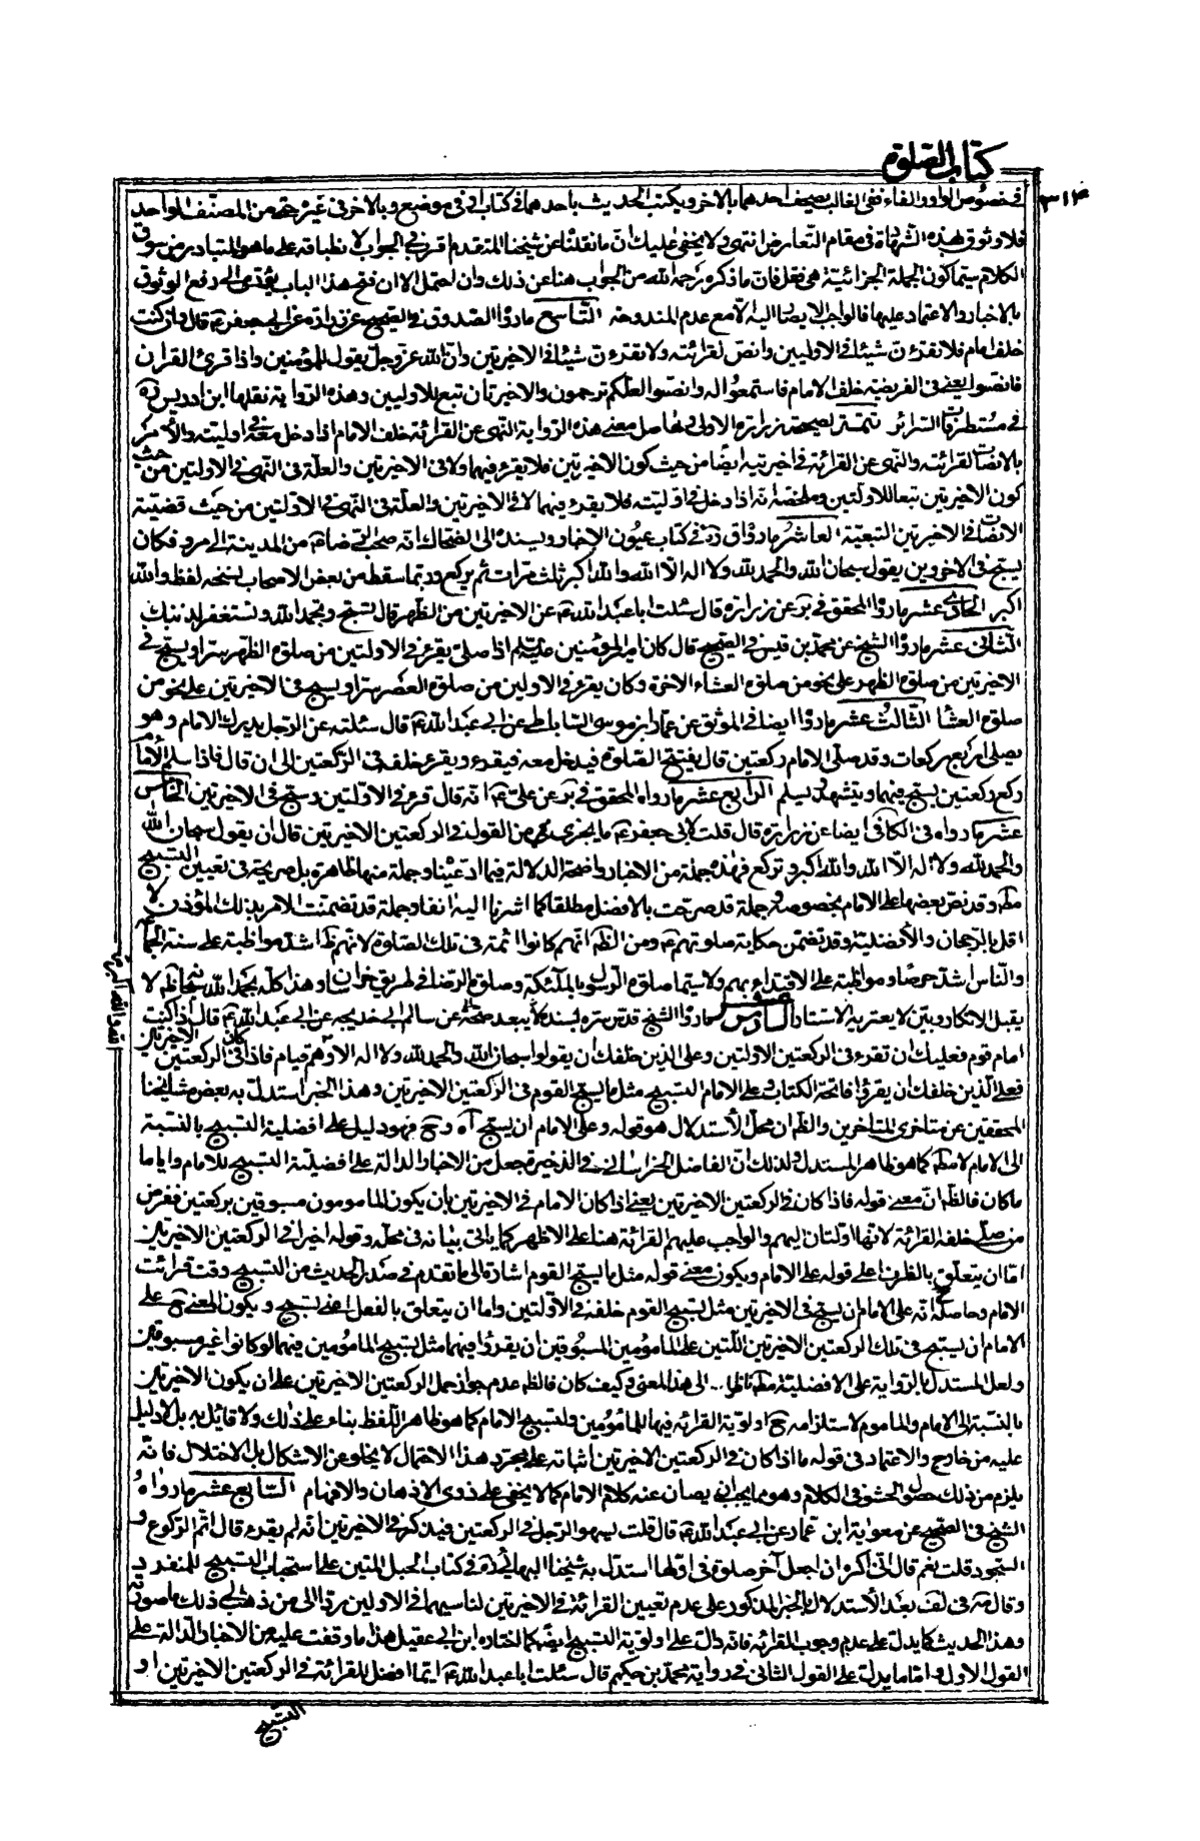 كتاب الصلوة
٣١٤
في خصوص الواو والفاء ففي الغالب يصحف احدهما بالاخر ويكتب الحديث باحدهما في كتاب او في موضع وبالاخر في غيره حتى من المصنف الواحد
فلا وثوق بهذه الشهادة في مقام التعارض انتهى ولا يخفى عليك ان ما نقلنا عن شيخنا المتقدم اقرب في الجواب لانطباقه على ما هو المتبادر من سوق
الكلام سيما كون الجملة الجزائية هي فقل فان ما ذكره رحمه الله من الجواب هنا عن ذلك وان احتمل الا ان فتح هذا الباب يؤدى الى رفع الوثوق
بالاخبار والاعتماد عليها فالواجب الا يصار اليه الا مع عدم المندوحة التاسع ما رواه الصدوق في الصحيح عن زرارة عن ابي جعفر ع قال وان كنت
خلف امام فلا تقرءن شيئا في الاوليين وانصت لقرائته ولا تقرءن شيئا في الاخيرتين وان الله عز وجل يقول للمؤمنين واذا قرئ القران
فانصتوا يعنى في الفريضة خلف الامام فاستمعوا له وانصتوا لعلكم ترحمون والاخيرتان تبع للاوليين وهذه الرواية نقلها ابن ادريس ره
في مستطرفات السرائر تتمة لصحيحة زرارة الاولى فحاصل معنى هذه الرواية النهى عن القرائة خلف الامام اذا دخل معه في اوليته والامر
بالانصات لقرائته والنهى عن القرائة في اخيرتيه ايضا من حيث كون الاخيرتين فلا يقرء فيهما ولا في الاخيرتين والعلة في النهى في الاولتين من حيث
كون الاخيرتين تبعا للاولتين وملخصه انه اذا دخل في اوليته فلا يقرء فيهما لا في الاخيرتين والعلة في النهى في الاولتين من حيث قضيته
الانصات في الاخيرتين التبعية العاشر ما رواه ق ره في كتاب عيون الاخبار وبسنده الى الضحاك انه صحب الرضا ع من المدينة الى مرو فكان
يسبح في الاخروين يقول سبحان الله والحمد لله ولا اله الا الله والله اكبر ثلث مرات ثم يركع وربما سقط من بعض الاصحاب نسخه لفظ والله
اكبر الحادى عشر ما رواه المحقق في بر عن زرارة قال سئلت ابا عبد الله ع عن الاخيرتين من الظهر قال تسبح وتحمد الله وتستغفر لذنبك
الثانى عشر ما رواه الشيخ عن محمد بن قيس في الصحيح قال كان امير المؤمنين عليه السلم اذا صلى يقرء في الاولتين من صلوة الظهر سرا ويسبح في
الاخيرتين من صلوة الظهر على نحو من صلوة العشاء الاخرة وكان يقرء في الاوليين من صلوة العصر سرا ويسبح في الاخيرتين على نحو من
صلوة العشا الثالث عشر ما رواه ايضا في الموثق عن عمار بن موسى الساباطى عن ابي عبد الله ع قال سئلته عن الرجل يدرك الامام وهو
يصلى اربع ركعات وقد صلى الامام ركعتين قال يفتتح الصلوة فيدخل معه فيقرء ويقرء خلفه في الركعتين الى ان قال فاذا سلم الامام
ركع ركعتين يسبح فيهما ويتشهد ويسلم الرابع عشر ما رواه المحقق في بر عن على ع انه قال قرء في الاولتين وسبح في الاخيرتين الخامس
عشر ما رواه في الكافى ايضا عن زرارة قال قلت لابي جعفر ع ما يجزى من القول في الركعتين الاخيرتين قال ان يقول سبحان الله
والحمد لله ولا اله الا الله والله اكبر وتركع فهذه جملة من الاخبار واضحة الدلالة فيما ادعيناه وجملة منها ظاهرة بل صريحة في تعيين التسبيح
مط وقد نص بعضها على الامام بخصوصه وجملة قد صرحت بالافضل مطلقا كما اشرنا اليه انفا وجملة قد تضمنت الامر بذلك المؤذن لا
اقل بالرجحان والافضلية وقد تضمن حكاية صلوتهم ع ومن الظ انهم كانوا ائمة في تلك الصلوة لانهم ظ اشد مواظبة على سنة الجماعة
والناس اشد حرصا ومواظبة على الاقتداء بهم ولا سيما صلوة الرسول بالملئكة وصلوة الرضا في طريق خراسان وهذا كله بحمد الله سبحانه ظ لا
يقبل الانكار وبين لا يعتريه الاستتار السادس عشر ما رواه الشيخ قدس سره بسند لا يبعد صحته عن سالم ابي خديجه عن ابي عبد الله ع قال اذا كنت
امام قوم فعليك ان تقرء في الركعتين الاولتين وعلى الذين خلفك ان يقولوا سبحان الله والحمد لله ولا اله الا وهم قيام فاذا كان في الركعتين الاخيرتين
فعلى الذين خلفك ان يقرؤا فاتحة الكتاب وعلى الامام التسبيح مثل ما يسبح القوم في الركعتين الاخيرتين وهذا الخبر استدل به بعض مشايخنا
المحققين من متاخرى المتاخرين والظ ان محل الاستدلال هو قوله وعلى الامام ان يسبح آه وح فهو دليل على افضلية التسبيح بالنسبة
الى الامام لا مط كما هو ظاهر المستدل ولذلك ان الفاضل الخراسانى في الذخيرة جعل من الاخبار الدالة على افضلية التسبيح للامام وايا ما
ما كان فالظ ان معنى قوله فاذا كان في الركعتين الاخيرتين يعنى اذا كان الامام في الاخيرتين بان يكون المامومون مسبوقين بركعتين ففرض
من صلى خلفه القرائة لانها اولتان اليهم والواجب عليهم القرائة هنا على الاظهر كما ياتى بيانه في محله وقوله اخيرا في الركعتين الاخيرتين
اما ان يتعلق بالظرف اعلى قوله على الامام ويكون معنى قوله مثل ما يسبح القوم اشارة الى ما تقدم في صدر الحديث من التسبيح وقت قرائت
الامام وحاصله ح انه على الامام ان يسبح في الاخيرتين مثل تسبيح القوم خلفه في الاولتين واما ان يتعلق بالفعل اعنى تسبيح ويكون المعنى ح على
الامام ان يسبح في تلك الركعتين الاخيرتين اللتين على المامومين المسبوقين ان يقرؤا فيهما مثل تسبيح المامومين فيهما لو كانوا غير مسبوقين
ولعل المستدل بالرواية على الافضلية مط ناظر الى هذا المعنى وكيف كان فالظ عدم جواز حمل الركعتين الاخيرتين على ان يكون الاخيرتين
بالنسبة الى الامام والماموم لاستلزامه ح اولوية القرائة فيها للمامومين ولتسبيح الامام كما هو ظاهر اللفظ بناء على ذلك ولا قائل به بلا دليل
عليه من خارج والاعتماد في قوله ما اذا كان في الركعتين الاخيرتين اثباته على مجرد هذا الاحتمال لا يخلو عن الاشكال بل الاختلال فانه
يلزم من ذلك حصول الحشو في الكلام وهو مما يجب ان يصان عنه كلام الامام كما لا يخفى على ذوى الاذهان والافهام السابع عشر ما رواه
الشيخ في الصحيح عن معوية ابن عمار عن ابي عبد الله ع قال قلت يسهو الرجل في الركعتين فيذكر في الاخيرتين انه لم يقرء قال اتم الركوع و
السجود قلت نعم قال انى اكره ان اجعل آخر صلوة في اولها استدل به شيخنا البهائى ره في كتاب الحبل المتين على استحباب التسبيح للمنفرد
وقال مة في لف بعد الاستدلال بالخبر المذكور على عدم تعيين القرائة في الاخيرتين لناسيهما في الاوليين ردا الى من ذهب الى ذلك ما صورته
وهذا الحديث كما يدل على عدم وجوب القرائة فانه دال على اولوية التسبيح ايضا كما اختاره ابن ابي عقيل هذا ما وقفت عليه من الاخبار الدالة على
القول الاول واما ما يدل على القول الثانى فرواية محمد بن حكيم قال سئلت ابا عبد الله ع ايما افضل للقرائة في الركعتين الاخيرتين او
التسبيح